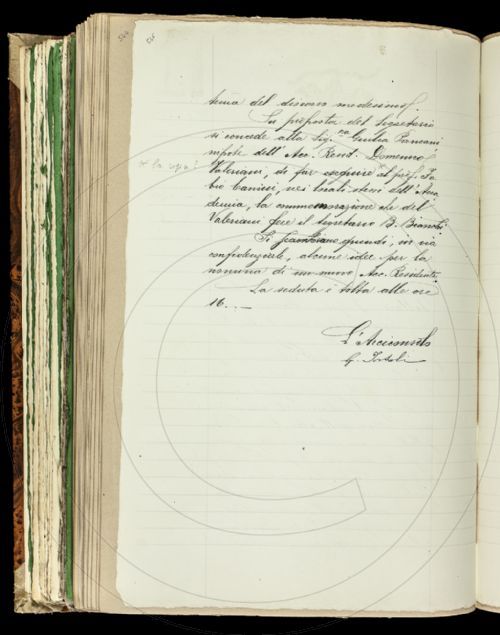 tema del discorso medesimo.
Su proposta del Segretario
si concede alla Sig.ra Giulia
nipote dell'Acc. Resid. Domenico
Valeriani, di far eseguire al prof. Fa-
bio, nei locali stessi dell'Acca-
demia, la commemorazione che del
Valeriani fece il Segretario B. Bianchi.
Si scambiano quindi, in via
confidenziale, alcune idee per la
nomina di un nuovo Acc. Residente.
La seduta è tolta alle ore
16. —
L'Arciconsolo
G. Tortoli